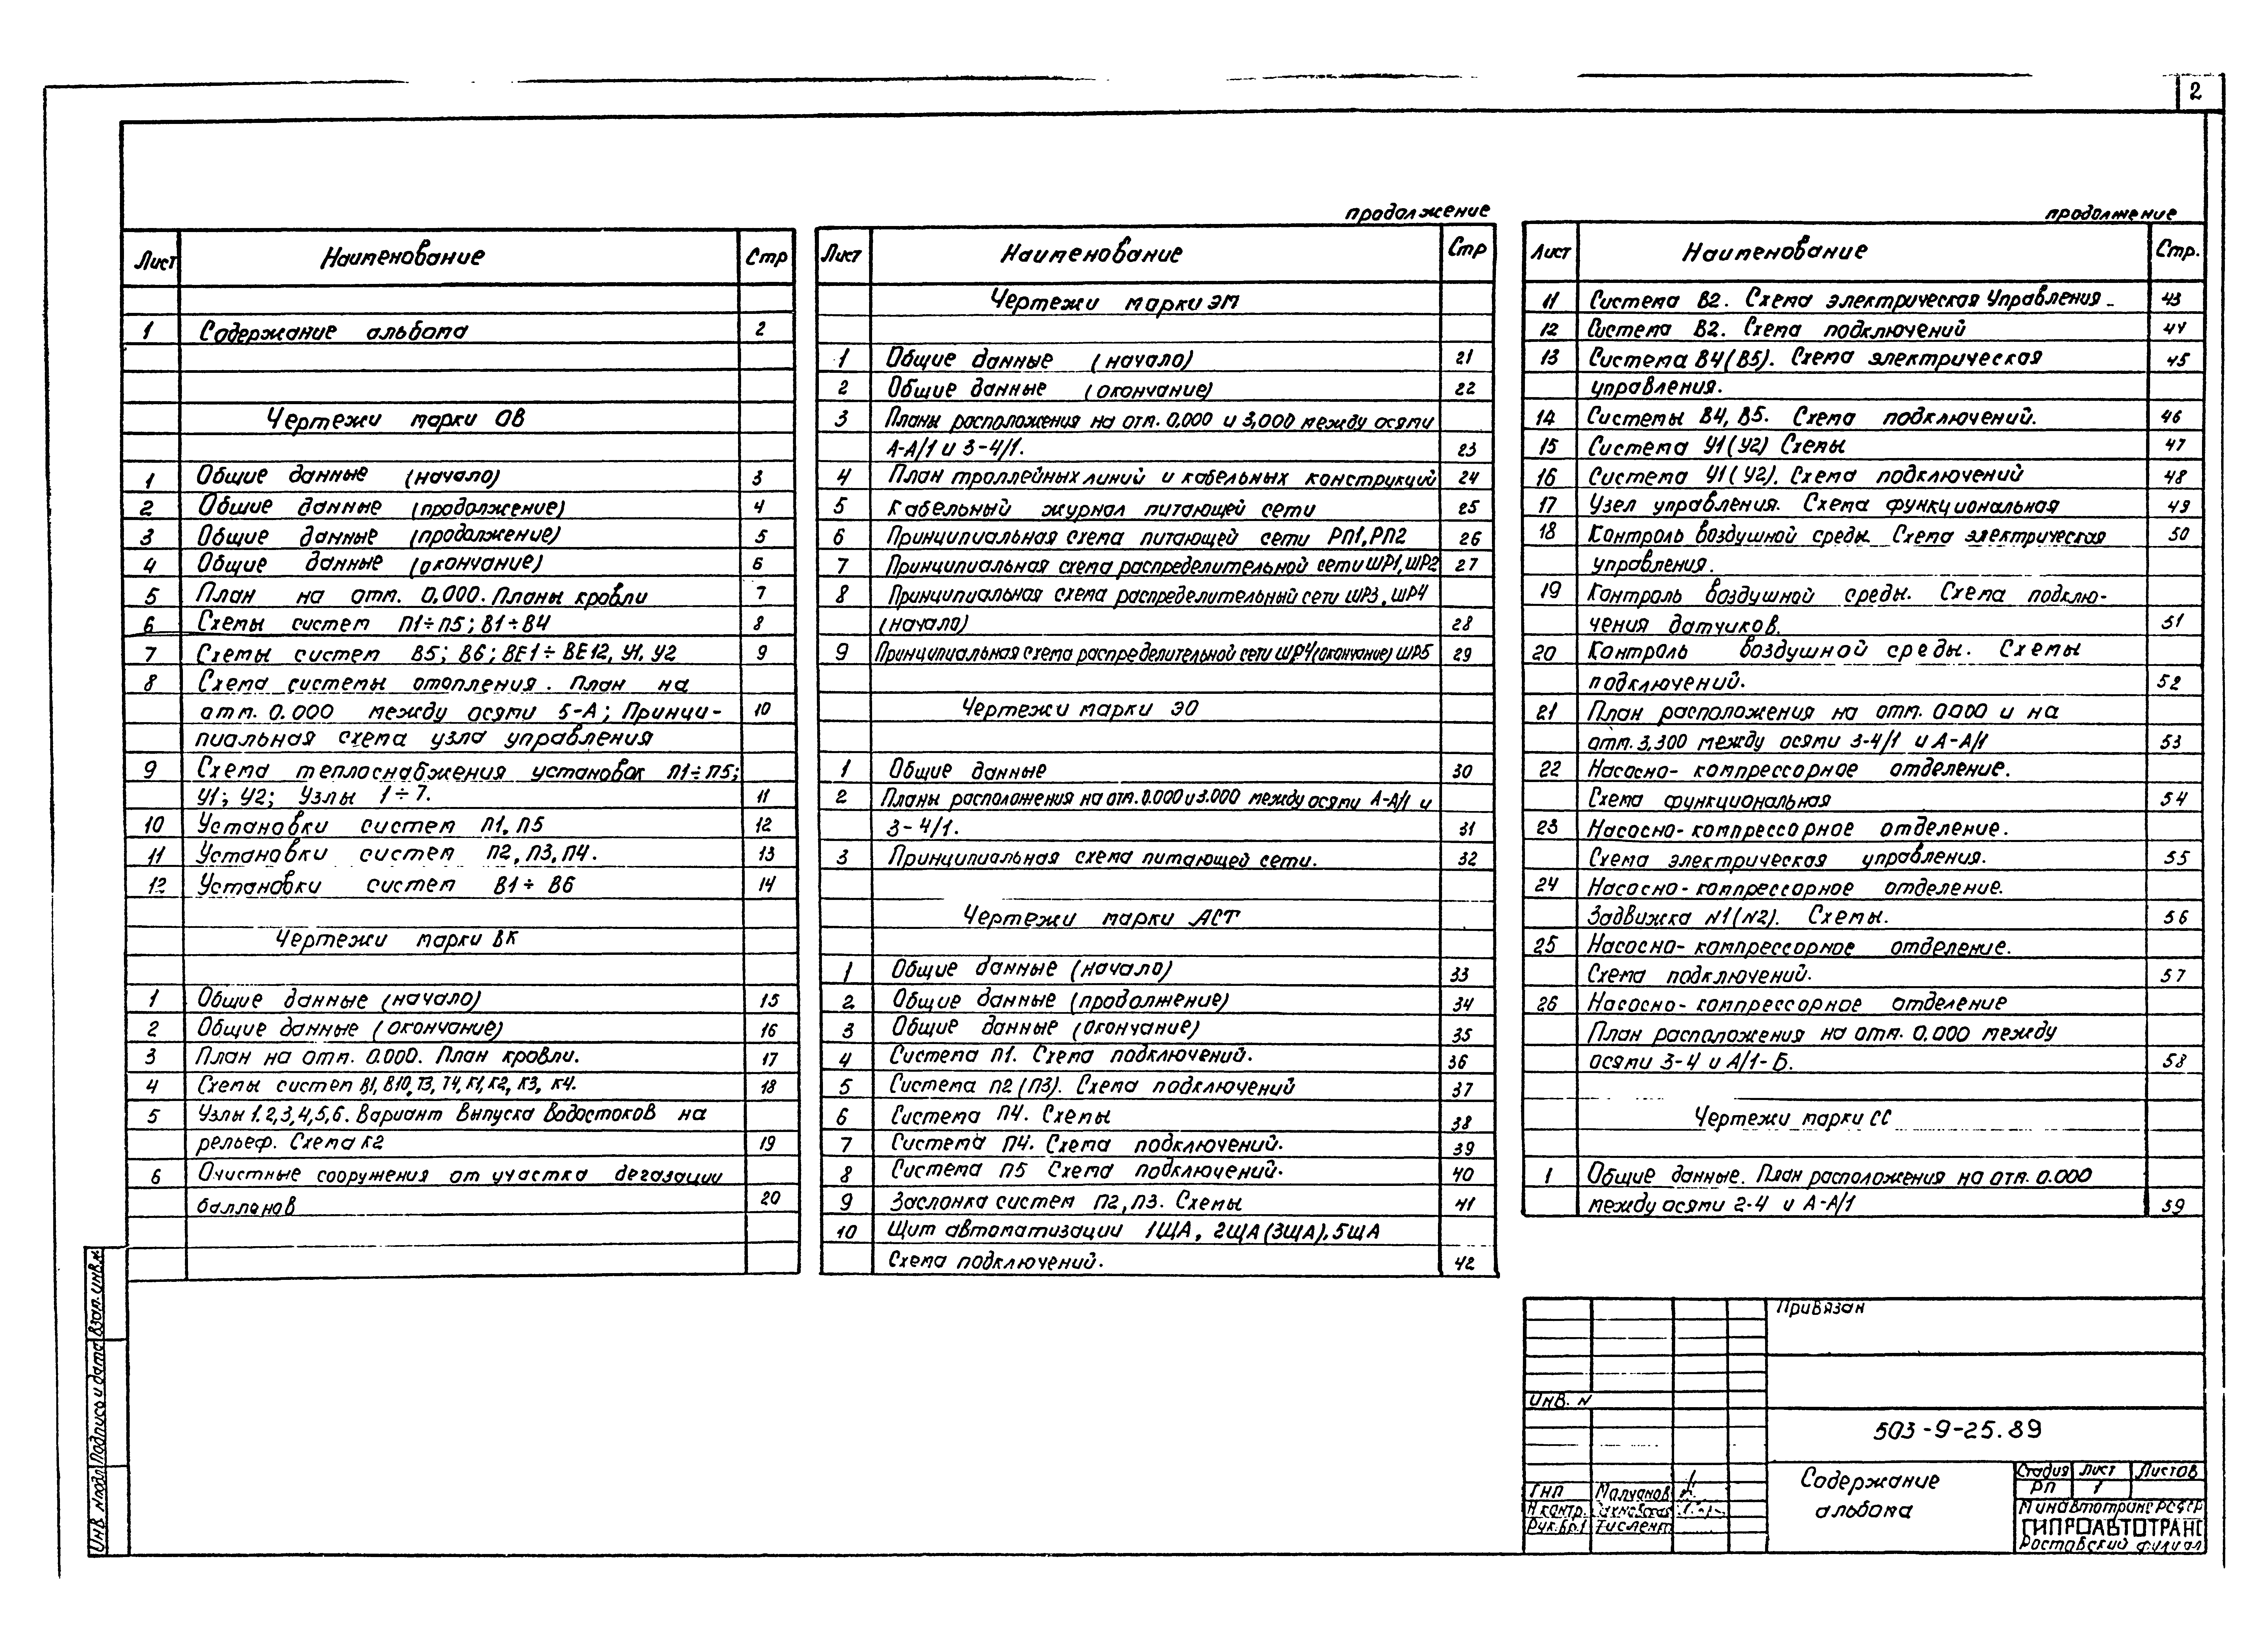 2
Лист Наименование Стр
1 Содержание альбома 2
Чертежи марки ОВ
1 Общие данные (начало) 3
2 Общие данные (продолжение) 4
3 Общие данные (продолжение) 5
4 Общие данные (окончание) 6
5 План на отм. 0,000. Планы кровли 7
6 Схемы систем П1÷П5; В1÷В4 8
7 Схемы систем В5; В6; ВЕ1÷ВЕ12, У1, У2 9
8 Схема системы отопления. План на
отм. 0.000 между осями 5-А; Принци- 10
пиальная схема узла управления
9 Схема теплоснабжения установок П1÷П5;
У1; У2; Узлы 1÷7. 11
10 Установки систем П1, П5 12
11 Установки систем П2, П3, П4. 13
12 Установки систем В1÷В6 14
Чертежи марки ВК
1 Общие данные (начало) 15
2 Общие данные (окончание) 16
3 План на отм. 0.000. План кровли. 17
4 Схемы систем В1, В10, Т3, Т4, К1, К2, К3, К4. 18
5 Узлы 1.2,3,4,5,6. Вариант выпуска водостоков на
рельеф. Схема К2 19
6 Очистные сооружения от участка дегазации
баллонов 20
продолжение
Лист Наименование Стр
Чертежи марки ЭМ
1 Общие данные (начало) 21
2 Общие данные (окончание) 22
3 Планы расположения на отм. 0,000 и 3,000 между осями
А-А/1 и 3-4/1. 23
4 План троллейных линий и кабельных конструкций 24
5 Кабельный журнал питающей сети 25
6 Принципиальная схема питающей сети РП1, РП2 26
7 Принципиальная схема распределительной сети ШР1, ШР2 27
8 Принципиальная схема распределительный сети ШР3, ШР4
(начало) 28
9 Принципиальная схема распределительной сети ШР4 (окончание) ШР5 29
Чертежи марки ЭО
1 Общие данные 30
2 Планы расположения на отм. 0.000 и 3.000 между осями А-А/1 и
3-4/1. 31
3 Принципиальная схема питающей сети. 32
Чертежи марки АСТ
1 Общие данные (начало) 33
2 Общие данные (продолжение) 34
3 Общие данные (окончание) 35
4 Система П1. Схема подключений. 36
5 Система П2 (П3). Схема подключений 37
6 Система П4. Схемы 38
7 Система П4. Схема подключений. 39
8 Система П5 Схема подключений. 40
9 Заслонка систем П2, П3. Схемы 41
10 Щит автоматизации 1ЩА, 2ЩА (3ЩА), 5ЩА
Схема подключений. 42
продолжение
Лист Наименование Стр.
11 Система В2. Схема электрическая Управления 43
12 Система В2. Схема подключений 44
13 Система В4 (В5). Схема электрическая 45
управления.
14 Системы В4, В5. Схема подключений. 46
15 Система У1 (У2) Схемы 47
16 Система У1 (У2). Схема подключений 48
17 Узел управления. Схема функциональная 49
18 Контроль воздушной среды. Схема электрическая 50
управления.
19 Контроль воздушной среды. Схема подклю-
чения датчиков. 51
20 Контроль воздушной среды. Схемы
подключений. 52
21 План расположения на отм. 0.000 и на
отм. 3,300 между осями 3-4/1 и А-А/1 53
22 Насосно-компрессорное отделение.
Схема функциональная 54
23 Насосно-компрессорное отделение.
Схема электрическая управления. 55
24 Насосно-компрессорное отделение.
Задвижка N1 (N2). Схемы. 56
25 Насосно-компрессорное отделение.
Схема подключений. 57
26 Насосно-компрессорное отделение
План расположения на отм. 0,000 между
осями 3-4 и А/1-Б. 58
Чертежи марки СС
1 Общие данные. План расположения на отм. 0.000
между осями 2-4 и А-А/1 59
Привязан
Инв. N
503-9-25.89
Содержание
альбома
Стадия Лист Листов
РП 1
Минавтотранс РСФСР
ГИПРОАВТОТРАНС
Ростовский филиал
ГИП
Н контр.
Рук.бр.1
Инв. N подл Подпись и дата Взам. инв. N